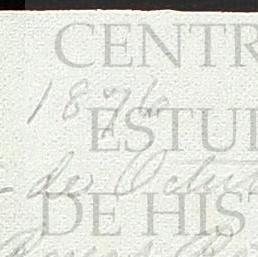 CENTR
1876
ESTU
de Octu
DE HIS